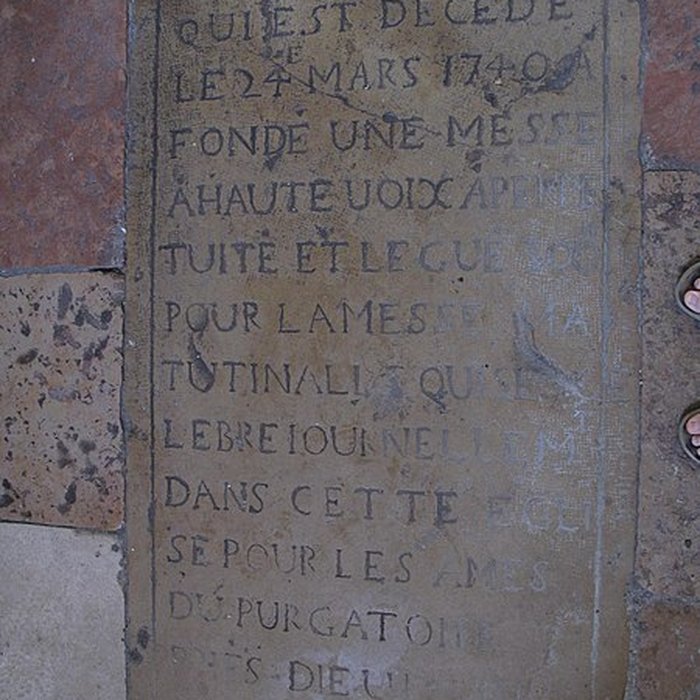 QUI EST DECEDE
LE 24 MARS 1740 A
FONDÉ UNE MESSE
A HAUTE UOIX A PERPE
TUITÉ ET LEGUÉ
POUR LA MESSE MA
TUTINALLE QUI SE
LEBRE IOURNELLEM
DANS CETTE EGLI
SE POUR LES AMES
DU PURGATOIRE
DIEU